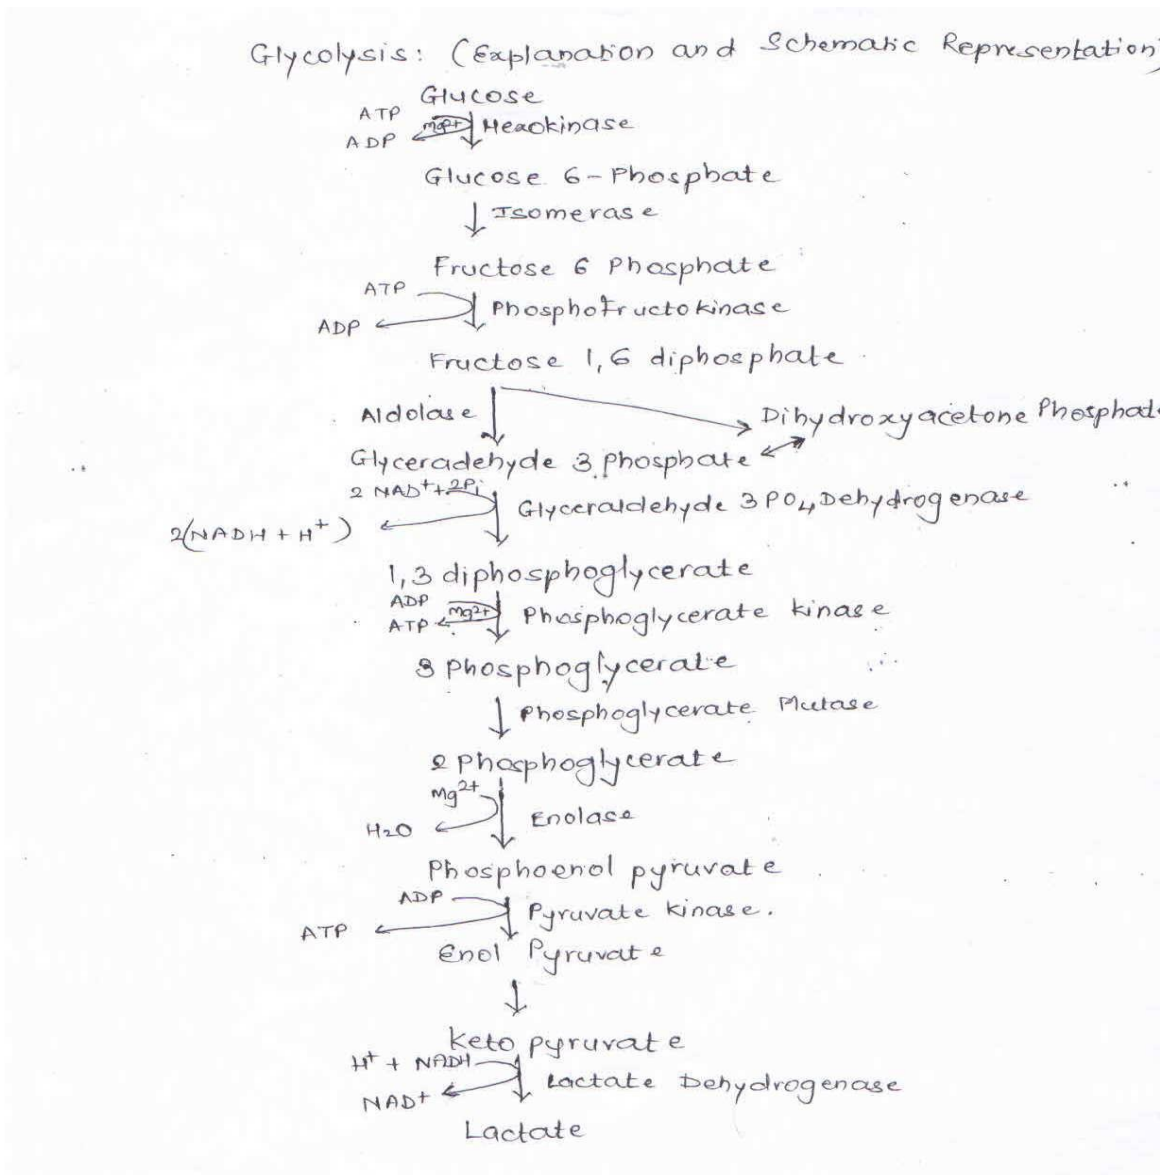 Glycolysis: (Explanation and Schematic Representation)
Glucose
ATP
Mg2+ Hexokinase
ADP
Glucose 6-Phosphate
Isomerase
Fructose 6 Phosphate
ATP
Phosphofructokinase
ADP
Fructose 1,6 diphosphate
Aldolase
Dihydroxyacetone Phosphate
Glyceradehyde 3 Phosphate
2 NAD+ + 2Pi
Glyceraldehyde 3 PO4 Dehydrogenase
2(NADH + H+)
1,3 diphosphoglycerate
ADP
Mg2+ Phosphoglycerate kinase
ATP
3 Phosphoglycerate
Phosphoglycerate Mutase
2 Phosphoglycerate
Mg2+
Enolase
H2O
Phosphoenol pyruvate
ADP
Pyruvate kinase.
ATP
Enol Pyruvate
Keto pyruvate
H+ + NADH
Lactate Dehydrogenase
NAD+
Lactate